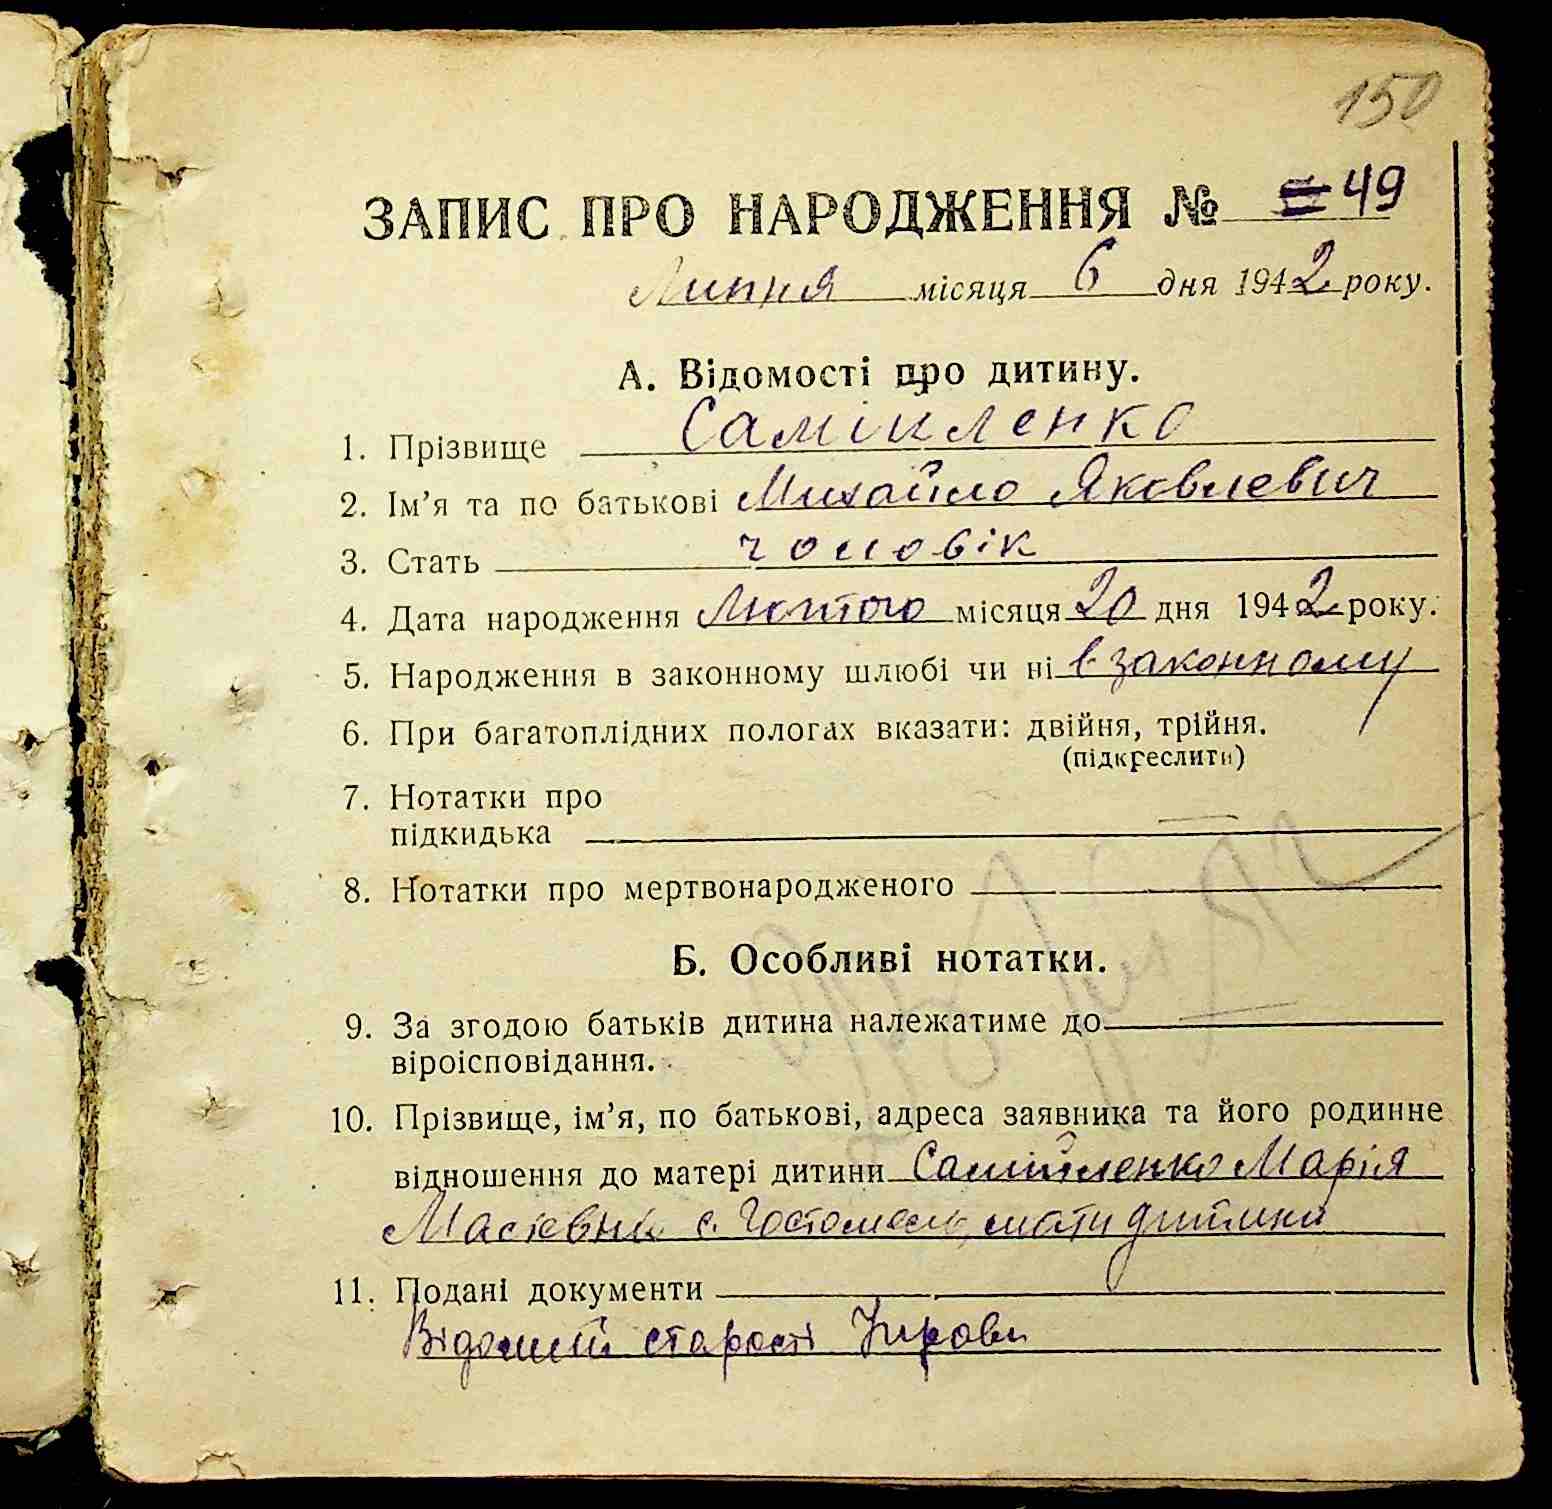 150
ЗАПИС ПРО НАРОДЖЕННЯ № 49
Липня місяця 6 дня 1942 року.
А. Відомості про дитину.
1. Прізвище Самійленко
2. Ім’я та по батькові Михайло Яковлевич
3. Стать чоловік
4. Дата народження Лютого місяця 20 дня 1942 року.
5. Народження в законному шлюбі чи ні в законному
6. При багатоплідних пологах вказати: двійня, трійня.
(підкреслити)
7. Нотатки про
підкидька
8. Нотатки про мертвонародженого
Б. Особливі нотатки.
9. За згодою батьків дитина належатиме до
віроісповідання.
10. Прізвище, ім’я, по батькові, адреса заявника та його родинне
відношення до матері дитини Самійленко Марія
с. Гостомель, мати дитини
11. Подані документи
старості Управи